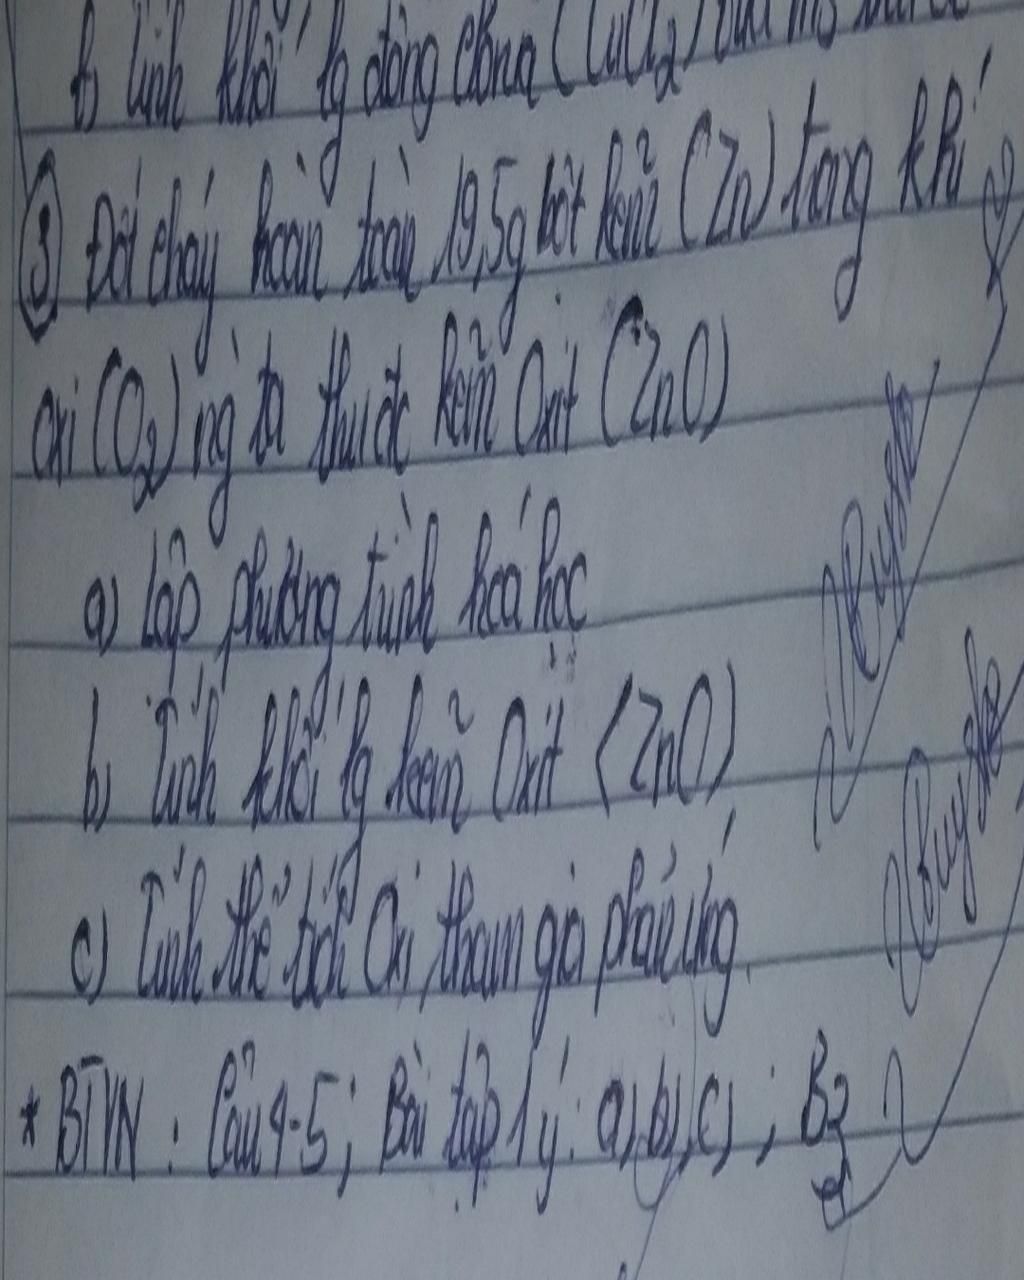 b) Tính khối lg đồng clorua (CuCl2)
③ Đốt cháy hoàn toàn 19,5g bột kẽm (Zn) trong khí
oxi (O2) ng ta thu đc kẽm Oxit (ZnO)
a) Lập phương trình hoá học
b) Tính khối lg kẽm Oxit (ZnO)
c) Tính thể tích Oxi tham gia phản ứng.
* BTVN : Câu 4-5; Bài tập 1 ý: a), b), c) ; B3